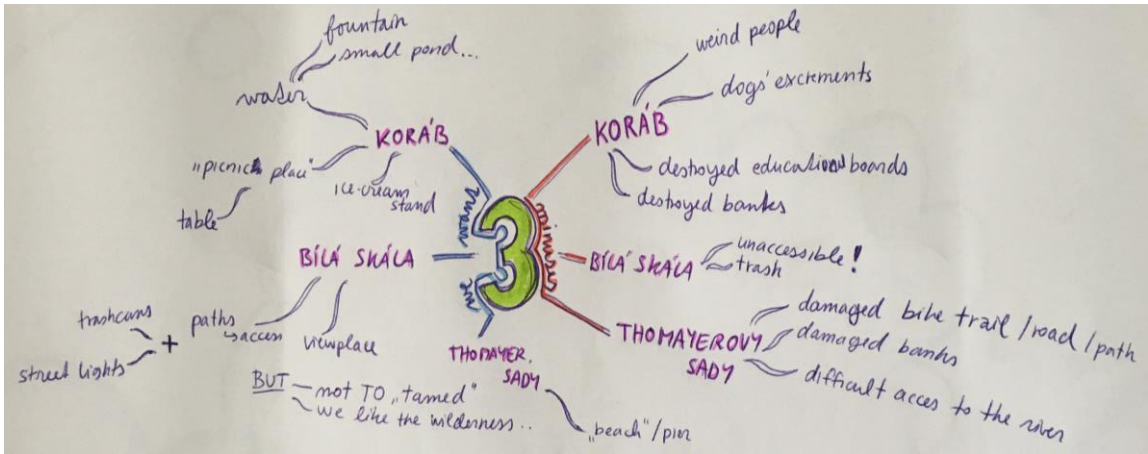 fountain
small pond...
water
KORÁB
„picnick place"
table
ice-cream
stand
BÍLÁ SKÁLA
trashcans
+
street lights
paths
↳ access
viewplace
BUT
not TO „tamed"
we like the wilderness..
THOMAYER.
SADY
„beach"/pier
we
3
minuses
KORÁB
weird people
dogs' excrements
destroyed educational boards
destroyed banks
BÍLÁ SKÁLA
unaccessible!
trash
THOMAYEROVY
SADY
damaged bike trail/road/path
damaged banks
difficult acces to the river